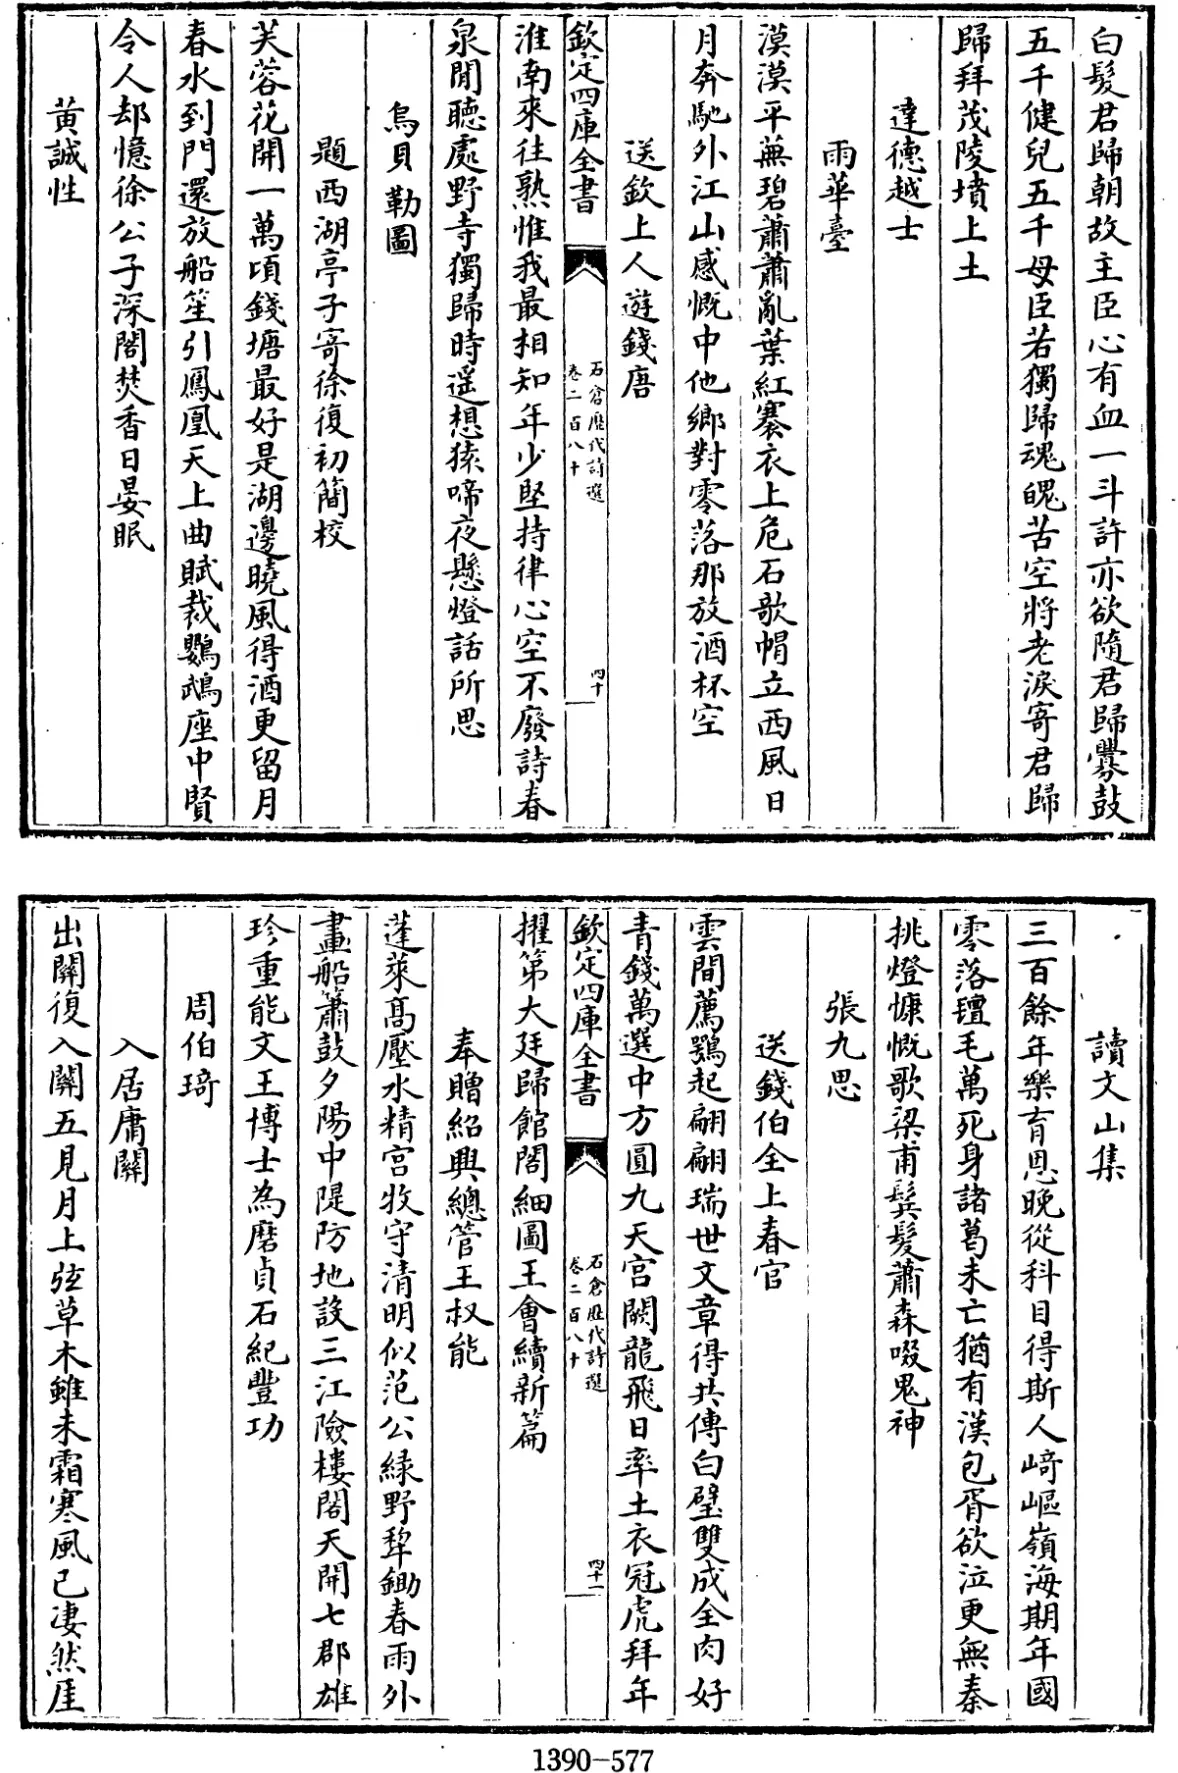 白髮君歸朝故主臣心有血一斗許亦欲隨君歸釁鼓
五千健兒五千母臣若獨歸魂魄苦空將老淚寄君歸
歸拜茂陵墳上土
達德越士
雨華臺
漠漠平蕪碧蕭蕭亂葉紅褰衣上危石歌帽立西風日
月奔馳外江山感慨中他鄉對零落那放酒杯空
送欽上人遊錢唐
欽定四庫全書
石倉歷代詩選
卷二百八十
四十
淮南來往熟惟我最相知年少堅持律心空不廢詩春
泉閒聽處野寺獨歸時遥想猿啼夜懸燈話所思
烏貝勒圖
題西湖亭子寄徐復初簡校
芙蓉花開一萬頃錢塘最好是湖邊曉風得酒更留月
春水到門還放船笙引鳳凰天上曲賦裁鸚鵡座中賢
令人却憶徐公子深閣焚香日晏眠
黄誠性
讀文山集
三百餘年樂育恩晚從科目得斯人崎嶇嶺海期年國
零落氊毛萬死身諸葛未亡猶有漢包胥欲泣更無秦
挑燈慷慨歌梁甫鬂髮蕭森啜鬼神
張九思
送錢伯全上春官
雲間薦鶚起翩翩瑞世文章得共傳白璧雙成全肉好
青錢萬選中方圓九天宫闕龍飛日率土衣冠虎拜年
欽定四庫全書
石倉歷代詩選
卷二百八十
四十一
擢第大廷歸館閣細圖王會續新篇
奉贈紹興總管王叔能
蓬萊髙壓水精宮牧守清明似范公緑野犂鋤春雨外
畫船簫鼓夕陽中隄防地設三江險樓閣天開七郡雄
珍重能文王博士為磨貞石紀豐功
周伯琦
入居庸關
出關復入關五見月上弦草木雖未霜寒風已凄然厓
1390-577